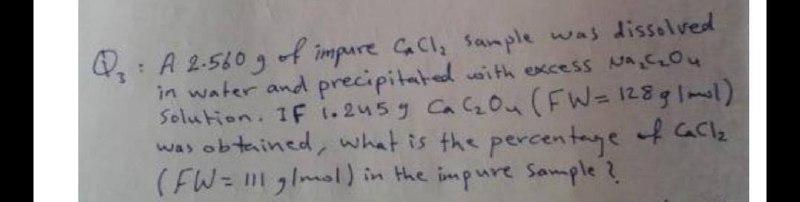 Q3 : A 2.560 g of impure CaCl2 sample was dissolved
in water and precipitated with excess Na2C2O4
Solution. IF 1.245 g CaC2O4 (FW= 128 g/mol)
was obtained, what is the percentage of CaCl2
(FW= 111 g/mol) in the impure sample ?